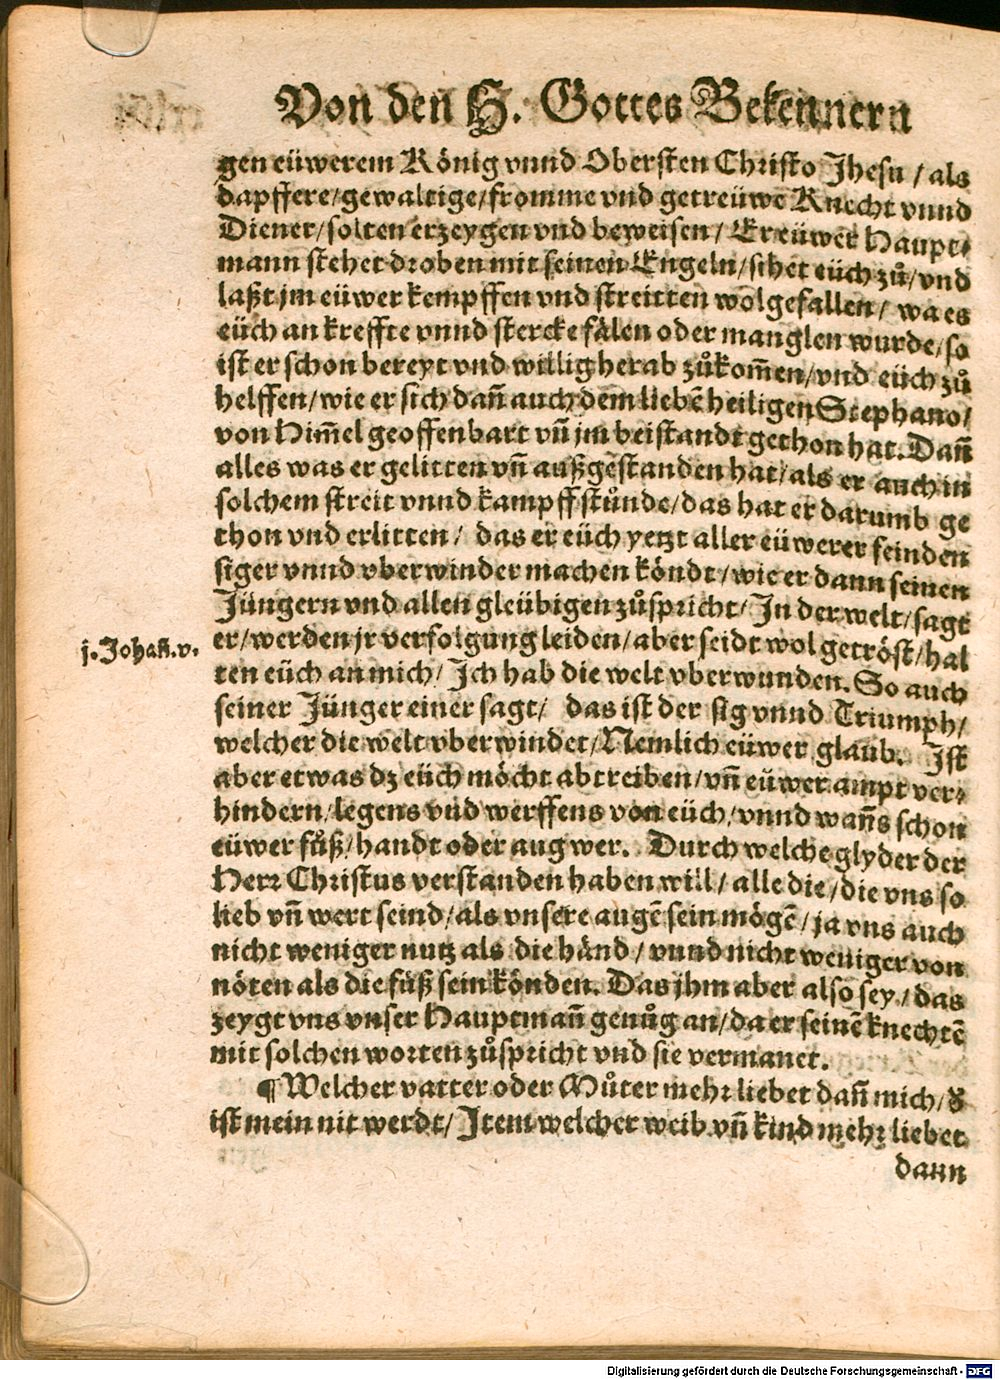 Von den H. Gottes Bekennern
gen eüwerem König vnnd Obersten Christo Jhesu / als
dapffere/gewaltige/fromme vnd getreüwe Knecht vnnd
Diener/solten erzeygen vnd beweisen/ Er eüwer Haupt⸗
mann stehet droben mit seinen Engeln/sihet eüch zů/vnd
laßt jm eüwer kempffen vnd streitten wolgefallen/ wa es
eüch an kreffte vnnd stercke fälen oder manglen wurde/so
ist er schon bereyt vnd willig herab zůkom̃en/vnd eüch zů
helffen/wie er sich dañ auch dem liebẽ heiligen Stephano/
von Him̃el geoffenbart vñ jm beistandt gethon hat. Dañ
alles was er gelitten vñ außgestanden hat/als er auch in
solchem streit vnnd kampff stůnde/das hat er darumb ge
thon vnd erlitten/ das er eüch yetzt aller eüwerer feinden
siger vnnd vberwinder machen köndt/wie er dann seinen
Jüngern vnd allen gleübigen zůspricht/Jn der welt/sagt
j.Johañ.v.
er/werden jr verfolgung leiden/aber seidt wol getröst/hal
ten eüch an mich/ Jch hab die welt vberwunden. So auch
seiner Jünger einer sagt/ das ist der sig vnnd Triumph/
welcher die welt vberwindet/Nemlich eüwer glaub. Jst
aber etwas dz eüch möcht abtreiben/vñ eüwer ampt ver⸗
hindern/legens vnd werffens von eüch/vnnd wañs schon
eüwer fůß/handt oder aug wer. Durch welche glyder der
Herr Christus verstanden haben will/alle die/die vns so
lieb vñ wert seind/als vnsere augẽ sein mögẽ/ja vns auch
nicht weniger nutz als die händ/vnnd nicht weniger von
nöten als die füß sein könden. Das jhm aber also sey/das
zeygt vns vnser Hauptmañ genůg an/da er seinẽ knechtẽ
mit solchen worten zůspricht vnd sie vermanet.
¶Welcher vatter oder Můter mehr liebet dañ mich/d̃
ist mein nit werdt/Jtem welcher weib vñ kind mehr liebet
dann
Digitalisierung gefördert durch die Deutsche Forschungsgemeinschaft - DFG